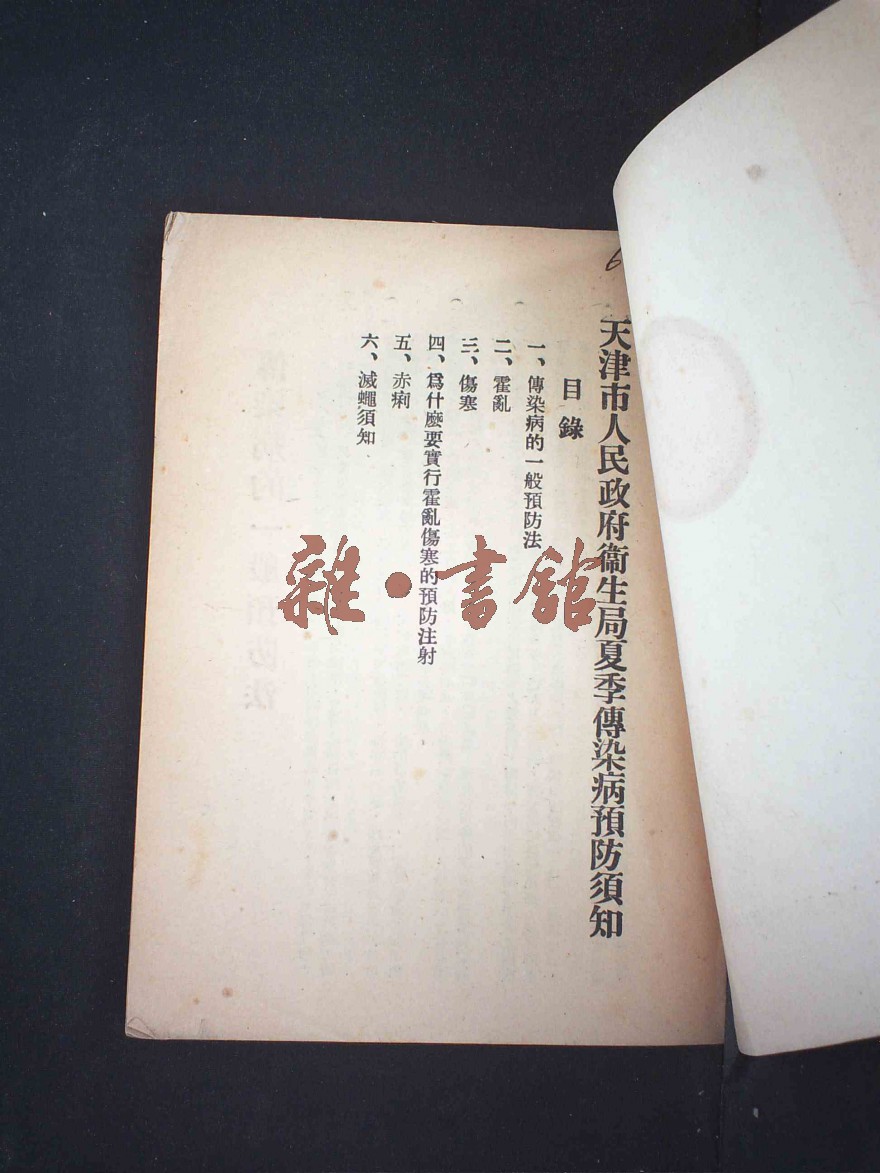 天津市人民政府衞生局夏季傳染病預防須知
目錄
一、傳染病的一般預防法
二、霍亂
三、傷寒
四、爲什麼要實行霍亂傷寒的預防注射
五、赤痢
六、滅蠅須知
6
雜·書館